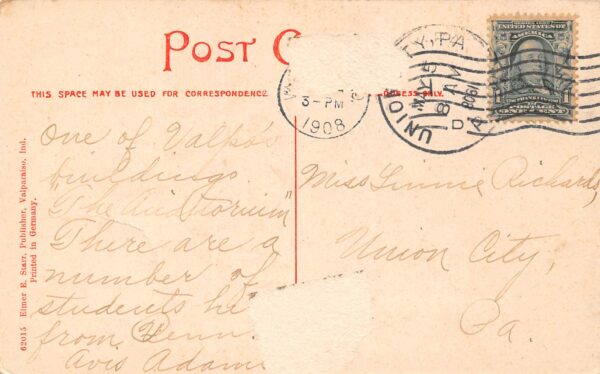 POST C
THIS SPACE MAY BE USED FOR CORRESPONDENCE
ADDRESS ONLY.
3-PM
1908
UNION CITY, PA
8 AM
1908
D
UNITED STATES OF
AMERICA
POSTAGE
ONE CENT
One of Valpo's
buildings
"The Auditorium"
There are a
number of
students he
from Penn.
Avis Adam
Miss Linnie Richards,
Union City,
Pa.
62015 Elmer E. Starr, Publisher, Valparaiso, Ind.
Printed in Germany.